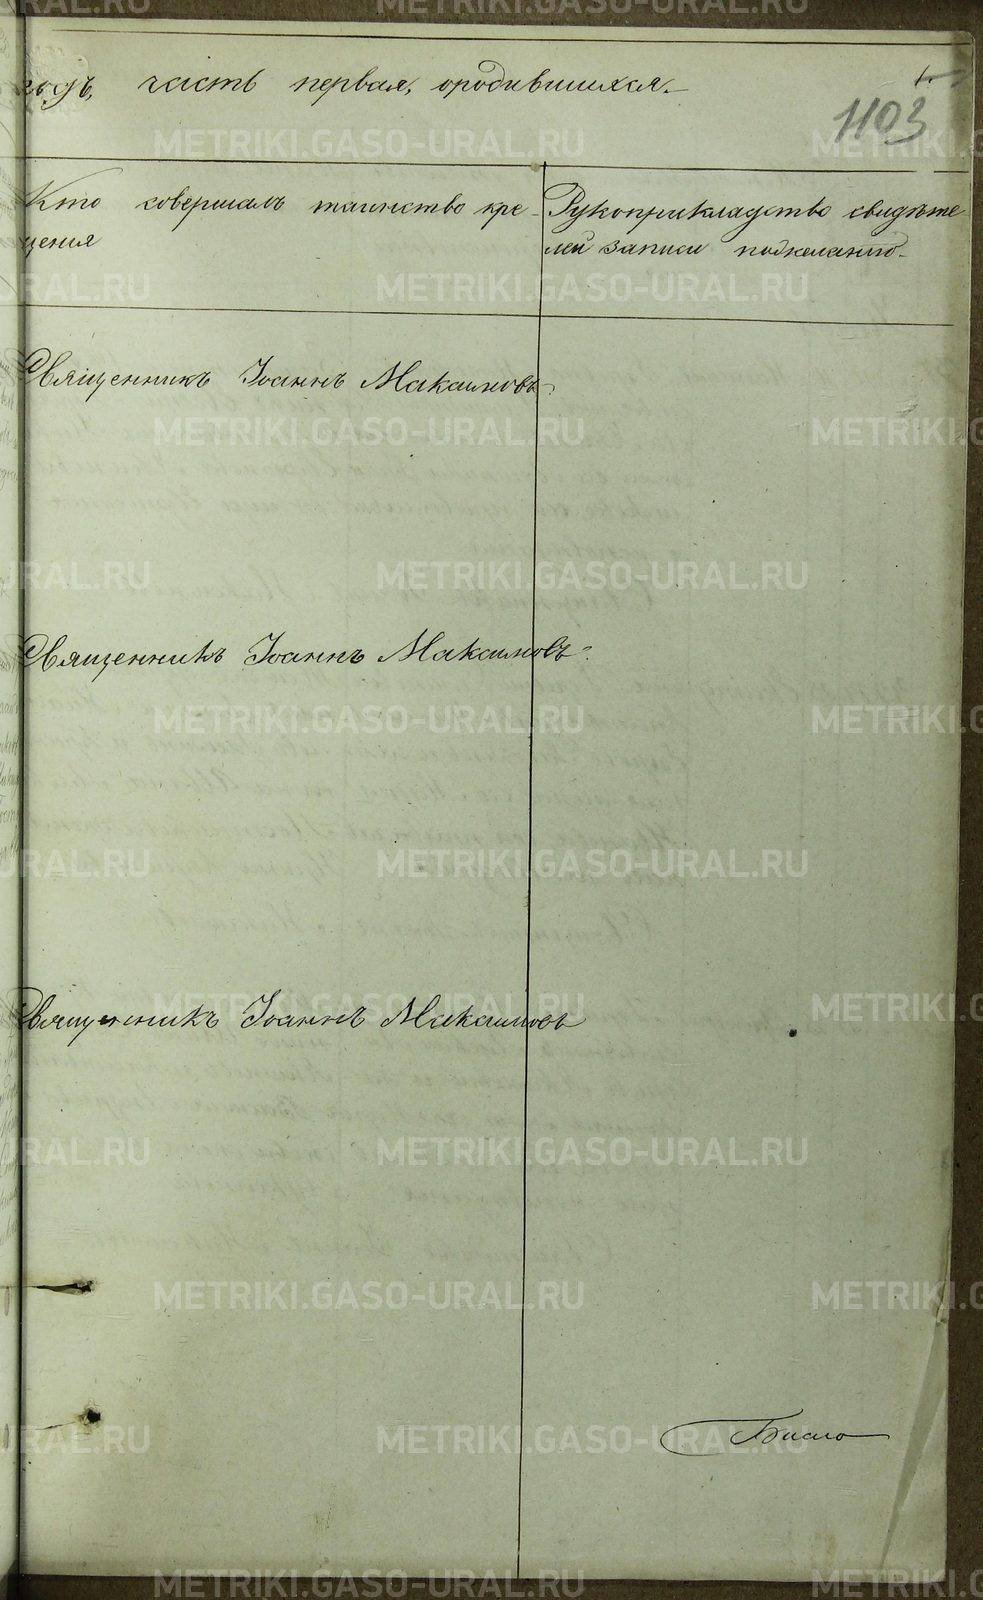 годъ, часть первая, ородившихся.
1103
Кто совершалъ таинство кре-
щения
Рукоприкладство свидѣте
лей записи пожеланію.
Священникъ Іоаннъ Максимовъ.
Священникъ Іоаннъ Максимовъ.
Священникъ Іоаннъ Максимовъ
METRIKI.GASO-URAL.RU